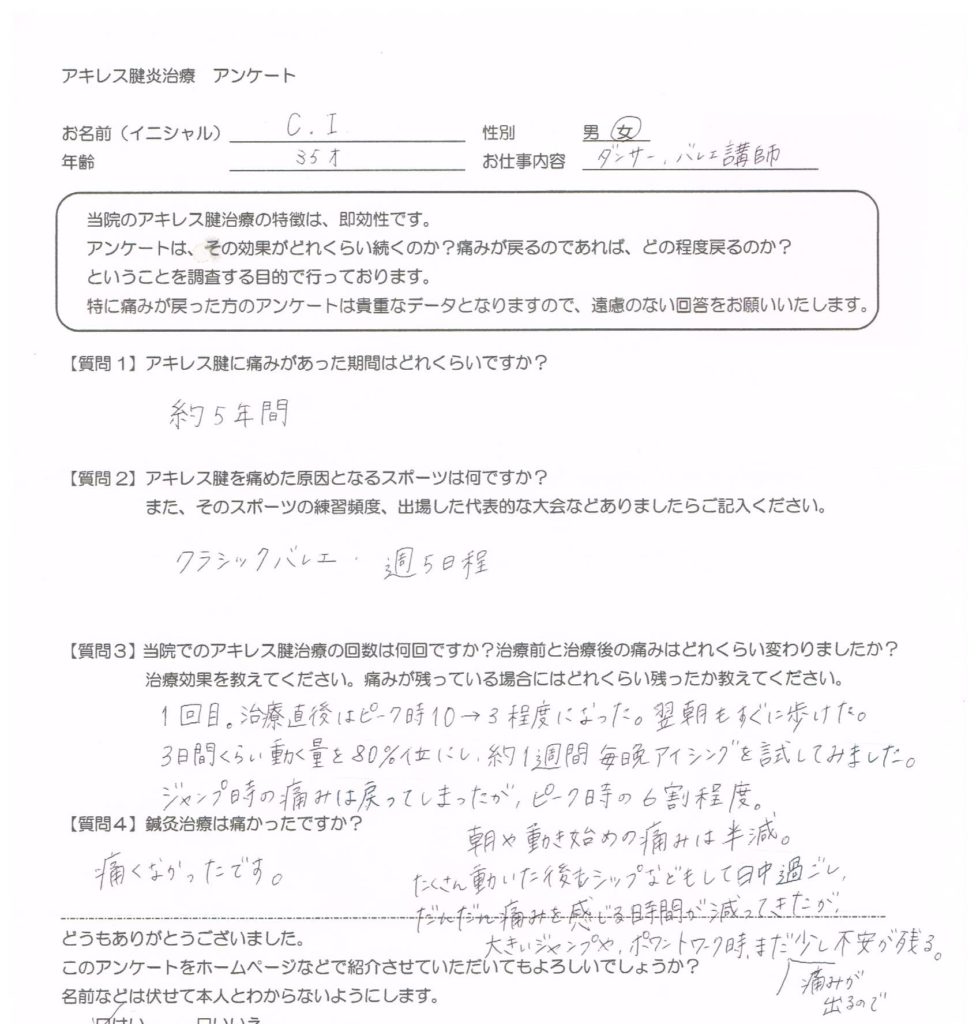 アキレス腱炎治療 アンケート
お名前（イニシャル） C.I 性別 男 女
年齢 35才 お仕事内容 ダンサー、バレエ講師
当院のアキレス腱治療の特徴は、即効性です。
アンケートは、その効果がどれくらい続くのか？痛みが戻るのであれば、どの程度戻るのか？
ということを調査する目的で行っております。
特に痛みが戻った方のアンケートは貴重なデータとなりますので、遠慮のない回答をお願いいたします。
【質問1】アキレス腱に痛みがあった期間はどれくらいですか？
約5年間
【質問2】アキレス腱を痛めた原因となるスポーツは何ですか？
また、そのスポーツの練習頻度、出場した代表的な大会などありましたらご記入ください。
クラシックバレエ・ 週5日程
【質問3】当院でのアキレス腱治療の回数は何回ですか？治療前と治療後の痛みはどれくらい変わりましたか？
治療効果を教えてください。痛みが残っている場合にはどれくらい残ったか教えてください。
1回目。治療直後はピーク時10→3程度になった。翌朝もすぐに歩けた。
3日間くらい動く量を80%位にし、約1週間毎晩アイシングを試してみました。
ジャンプ時の痛みは戻ってしまったが、ピーク時の6割程度。
朝や動き始めの痛みは半減。
たくさん動いた後もシップなどもして日中過ごし、
だんだん痛みを感じる時間が減ってきたが、
大きいジャンプや、ポワントワーク時、まだ少し不安が残る。
痛みが
出るので
【質問4】鍼灸治療は痛かったですか？
痛くなかったです。
どうもありがとうございました。
このアンケートをホームページなどで紹介させていただいてもよろしいでしょうか？
名前などは伏せて本人とわからないようにします。
☑はい □いいえ